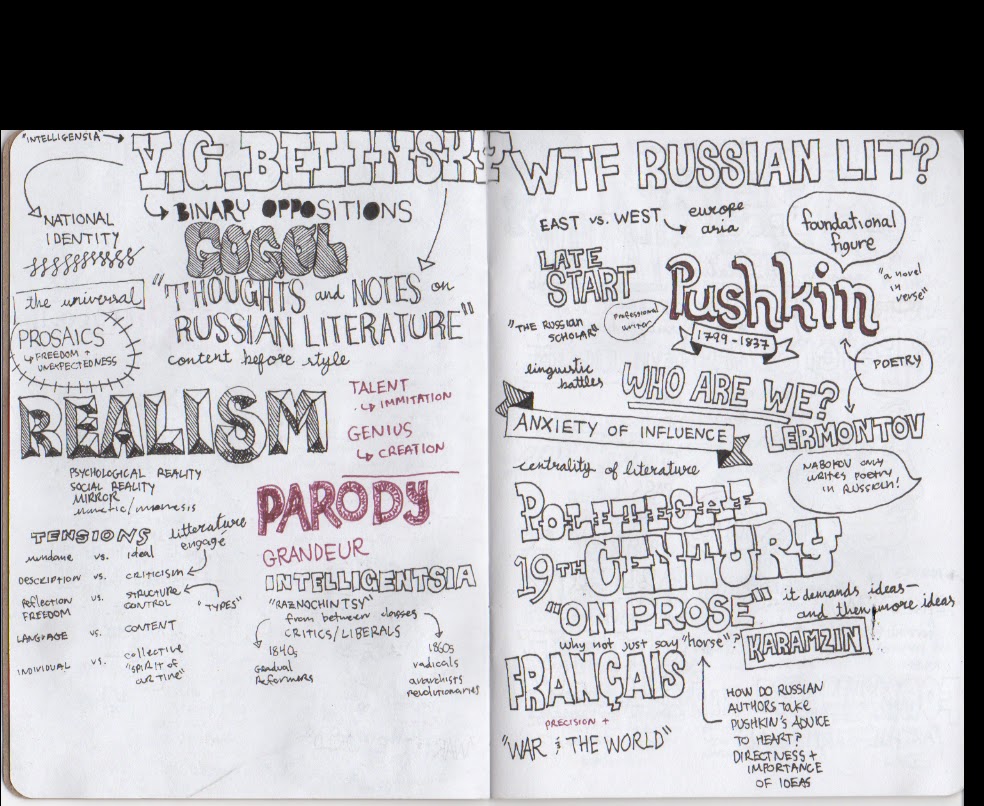 "INTELLIGENSIA" →
V.G. BELINSKY
BINARY OPPOSITIONS
NATIONAL
IDENTITY
GOGOL
the universal
"THOUGHTS and NOTES on
RUSSIAN LITERATURE"
content before style
PROSAICS
FREEDOM +
UNEXPECTEDNESS
REALISM
TALENT
IMMITATION
GENIUS
CREATION
PSYCHOLOGICAL REALITY
SOCIAL REALITY
MIRROR
mimetic/mimesis
PARODY
GRANDEUR
TENSIONS
litterature
engagé
mundane vs. ideal
DESCRIPTION vs. CRITICISM
reflection vs. STRUCTURE
FREEDOM CONTROL
"TYPES"
LANGUAGE vs. CONTENT
INDIVIDUAL vs. collective
"SPIRIT OF
OUR TIME"
INTELLIGENTSIA
"RAZNOCHINTSY"
from between classes
CRITICS/LIBERALS
1840s
Gradual
Reformers
1860s
radicals
anarchists
revolutionaries
WTF RUSSIAN LIT?
EAST vs. WEST
europe
asia
foundational
figure
LATE
START
Pushkin
1799-1837
"a novel
in
verse"
Professional
writer
"THE RUSSIAN
SCHOLAR"
POETRY
linguistic
battles
WHO ARE WE?
ANXIETY OF INFLUENCE
LERMONTOV
centrality of literature
NABOKOV ONLY
WRITES POETRY
IN RUSSIAN!
POLITICAL
19TH CENTURY
"ON PROSE"
it demands ideas—
and then more ideas
Why not just say "horse"?
KARAMZIN
FRANÇAIS
PRECISION +
"WAR & THE WORLD"
HOW DO RUSSIAN
AUTHORS TAKE
PUSHKIN'S ADVICE
TO HEART?
DIRECTNESS +
IMPORTANCE
OF IDEAS